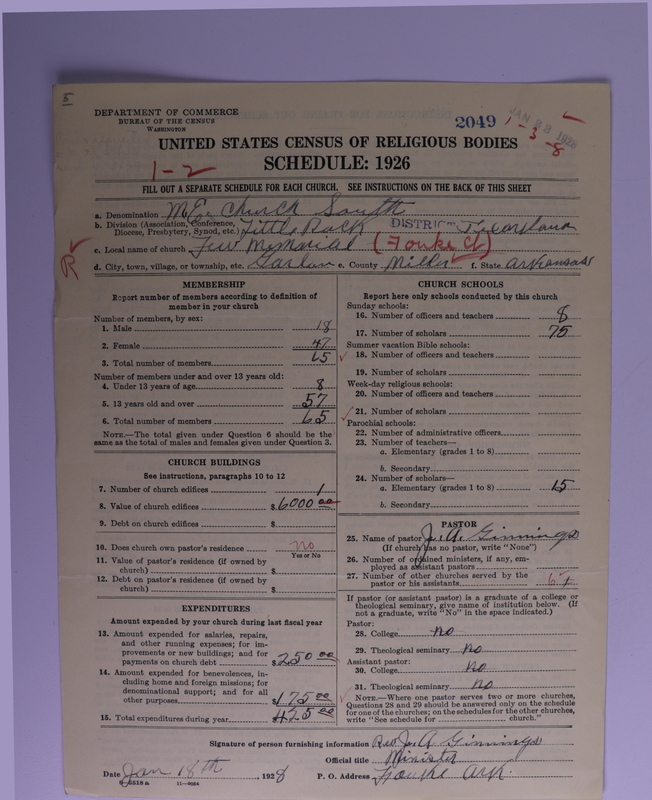 DEPARTMENT OF COMMERCE
BUREAU OF THE CENSUS
WASHINGTON
2049
JAN 28 1928
1-3-8
UNITED STATES CENSUS OF RELIGIOUS BODIES
SCHEDULE: 1926
1-2
FILL OUT A SEPARATE SCHEDULE FOR EACH CHURCH. SEE INSTRUCTIONS ON THE BACK OF THIS SHEET
a. Denomination M.E. Church South
b. Division (Association, Conference, Diocese, Presbytery, Synod, etc.) Little Rock DISTRICT Texarkana
c. Local name of church Few Memorial (Fouke Ct)
R
d. City, town, village, or township, etc. Garlan e. County Miller f. State Arkansas
MEMBERSHIP
Report number of members according to definition of
member in your church
Number of members, by sex:
1. Male 18
2. Female 47
3. Total number of members 65
Number of members under and over 13 years old:
4. Under 13 years of age 8
5. 13 years old and over 57
6. Total number of members 65
NOTE.—The total given under Question 6 should be the
same as the total of males and females given under Question 3.
CHURCH BUILDINGS
See instructions, paragraphs 10 to 12
7. Number of church edifices 1
8. Value of church edifices $6000 00
9. Debt on church edifices $
10. Does church own pastor's residence no
Yes or No
11. Value of pastor's residence (if owned by
church) $
12. Debt on pastor's residence (if owned by
church) $
EXPENDITURES
Amount expended by your church during last fiscal year
13. Amount expended for salaries, repairs,
and other running expenses; for im-
provements or new buildings; and for
payments on church debt $250 00
14. Amount expended for benevolences, in-
cluding home and foreign missions; for
denominational support; and for all
other purposes $175 00
15. Total expenditures during year $425 00
CHURCH SCHOOLS
Report here only schools conducted by this church
Sunday schools:
16. Number of officers and teachers 8
17. Number of scholars 75
Summer vacation Bible schools:
18. Number of officers and teachers
19. Number of scholars
Week-day religious schools:
20. Number of officers and teachers
21. Number of scholars
Parochial schools:
22. Number of administrative officers
23. Number of teachers—
a. Elementary (grades 1 to 8)
b. Secondary
24. Number of scholars—
a. Elementary (grades 1 to 8) 15
b. Secondary
PASTOR
25. Name of pastor J. A. Ginnings
(If church has no pastor, write "None")
26. Number of ordained ministers, if any, em-
ployed as assistant pastors
27. Number of other churches served by the
pastor or his assistants
If pastor (or assistant pastor) is a graduate of a college or
theological seminary, give name of institution below. (If
not a graduate, write "No" in the space indicated.)
Pastor:
28. College no
29. Theological seminary no
Assistant pastor:
30. College no
31. Theological seminary no
NOTE.—Where one pastor serves two or more churches,
Questions 28 and 29 should be answered only on the schedule
for one of the churches; on the schedules for the other churches,
write "See schedule for church."
Signature of person furnishing information Rev J. A. Ginnings
Official title Minister
Date Jan 18th, 1928 P. O. Address Fouke Ark.
11—9054